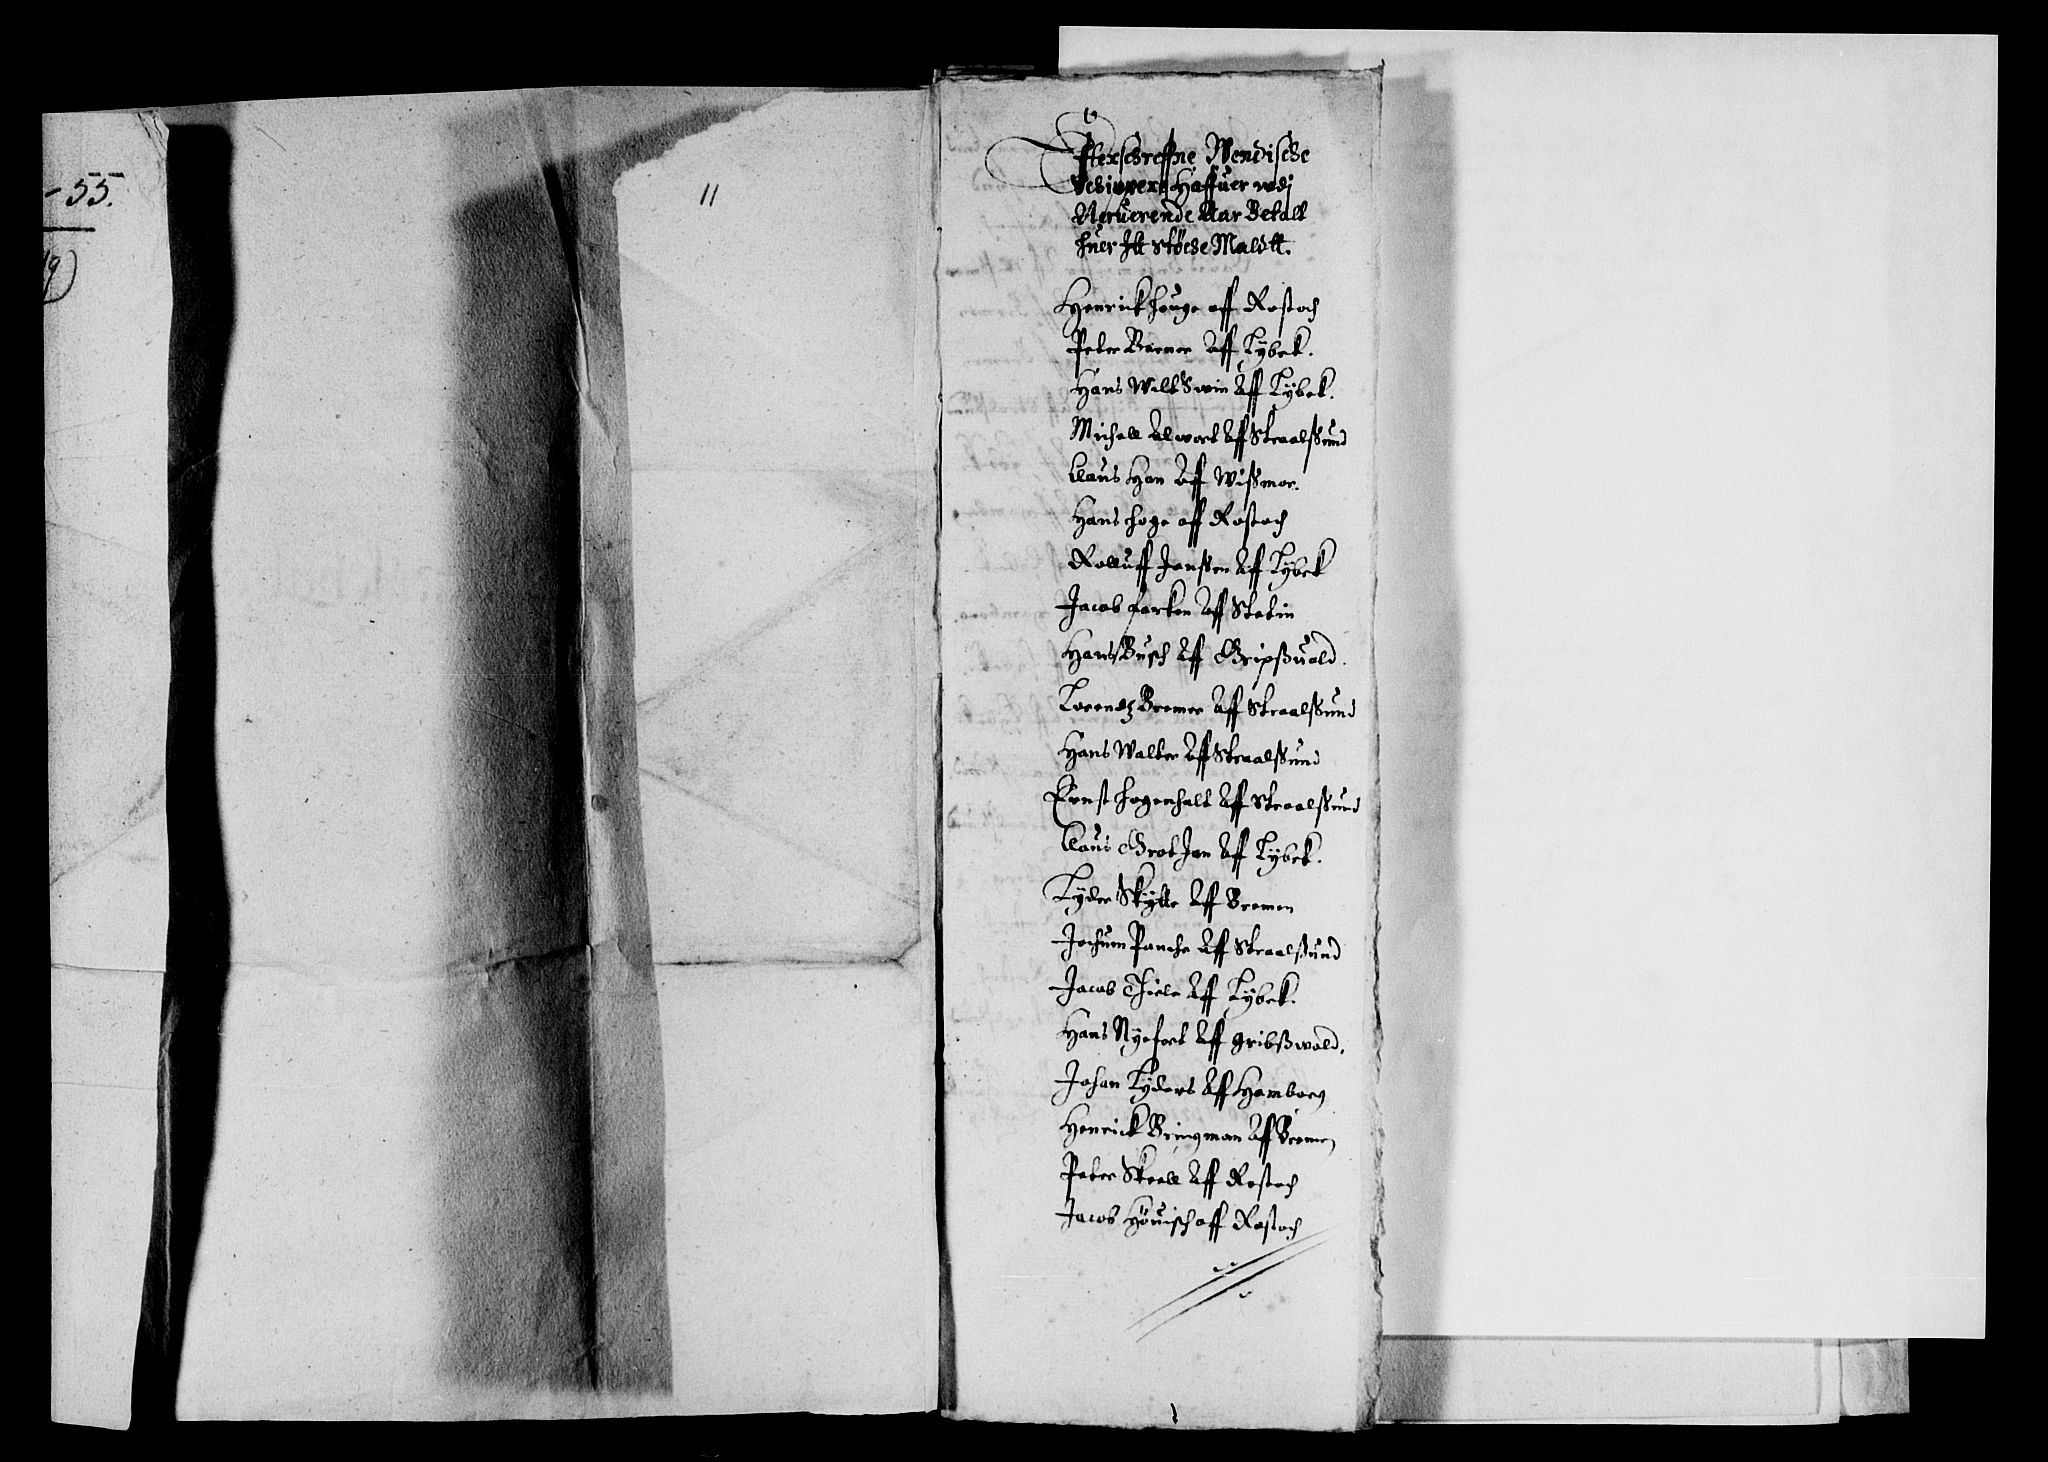 - 55.
11
Efterschreffne Wendische
Schippere Haffuer udj
Neruerende Aar Betalt
huer Itt støche Maldtt.
Henrick Houge aff Rostoch
Peter Barner Aff Lybek.
Hans Wilt Swin Aff Lybek.
Michell Alwort Aff Straalssund
Claus Han Aff Wissmor.
Hans Hoge aff Rostoch
Rolluff Janssen Aff Lybek
Jacob Farken Aff Stetin
Hans Busch Aff Gripssuald.
Lorendtz Bremer Aff Straalssund
Hans Walter Aff Straalssund
Ernst Hogenhalt Aff Straalssund
Claus Grot Jan Aff Lybek.
Lyder Skytte Aff Bremen
Jochum Panche Aff Straalssund
Jacob Thiele Aff Lybek.
Hans Nyefort Aff gribsswald.
Johan Lyders Aff Hamborg
Henrick Bringman Aff Bremen
Peter Skrell Aff Rostoch
Jacob Høuisch aff Rostoch